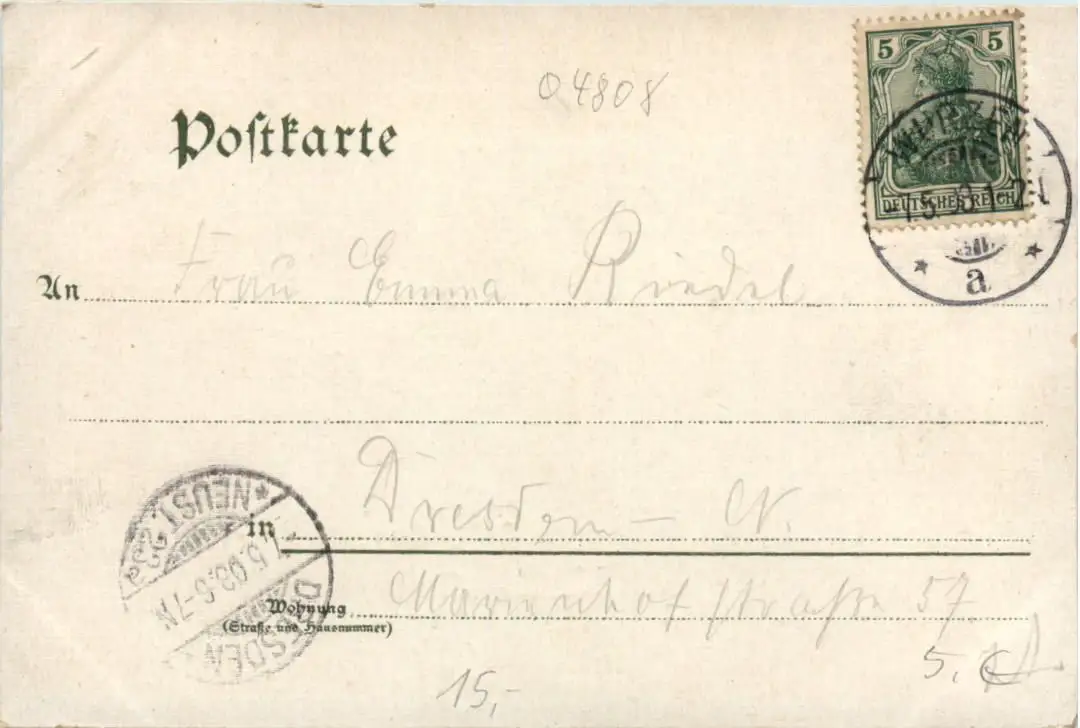 04808
5 5
DEUTSCHES REICH
WURZEN
7.5.03.1-2N.
a
Poſtkarte
An Frau Emma Riedel
in Dresden – N.
Wohnung Marienhofſtraße 57.
(Straße und Hausnummer)
DRESDEN
7.5.03.6-7N
*NEUST. 23
5.
15,-